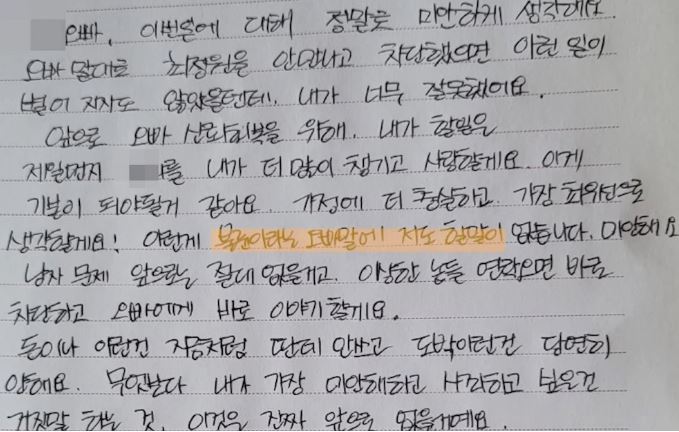 오빠, 이번일에 대해 정말로 미안하게 생각해요
오빠 말대로 최정원을 안만나고 차단했으면 이런 일이
벌어지지도 않았을텐데, 내가 너무 잘못했어요.
앞으로 오빠 신뢰회복을 위해, 내가 할일은
제일먼저 를 내가 더 많이 챙기고 사랑할게요 이게
기본이 되야될거 같아요. 가정에 더 충실하고 가장 최우선으로
생각할게요! 이런게 오빠말에 저도 할말이 없습니다. 미안해요
남자 문제 앞으로는 절대 없을거고, 이상한 놈들 연락오면 바로
차단하고 오빠에게 바로 이야기할게요.
돈이나 이런건 지금처럼 딴데 안쓰고 도박이런건 당연히
안해요. 무엇보다 내가 가장 미안해하고 사과하고 싶은건
거짓말 하는 것, 이것은 진짜 앞으로 없을거예요.